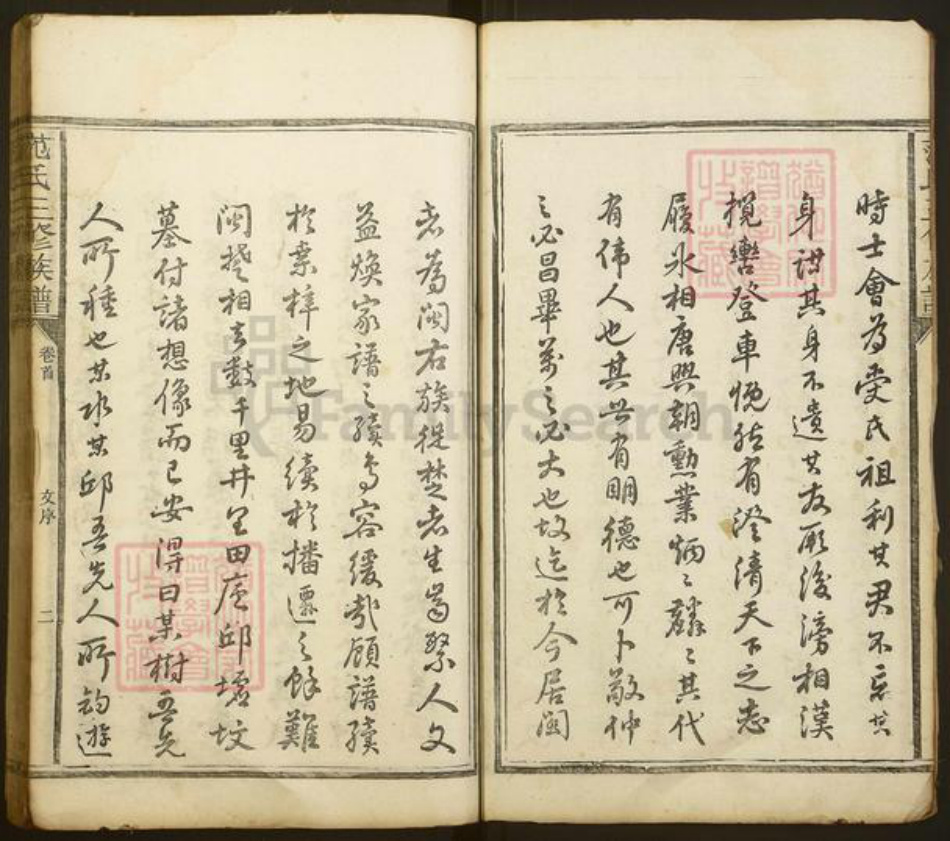 時士會為受氏祖利其君不忘其
身謀其身不遺其友厥後滂相漢
攬轡登車慨然有澄清天下之志
履冰相唐興朝勳業炳〻麟〻其代
有偉人也其世有明德也可卜敬仲
之必昌畢萬之必大也故迄於今居閩
者為閩右族徙楚者生齒繁人文
益煥家譜之續烏容緩哉顧譜續
於桑梓之地易續於播遷之餘難
閩楚相去數千里井里田廬邱墟坟
墓付諸想像而已安得曰某樹吾先
人所種也某水某邱吾先人所釣遊
范氏三修族譜
卷首
文序
二
FamilySearch